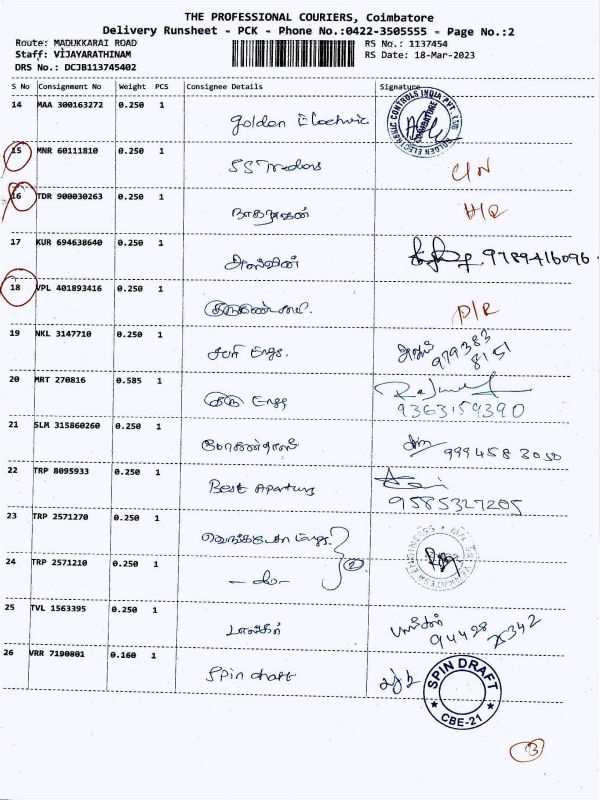 THE PROFESSIONAL COURIERS, Coimbatore
Delivery Runsheet - PCK - Phone No.:0422-3505555 - Page No.:2
Route: MADUKKARAI ROAD
Staff: VIJAYARATHINAM
DRS No.: DCJB113745402
RS No.: 1137454
RS Date: 18-Mar-2023
S No Consignment No Weight PCS Consignee Details Signature
14 MAA 300163272 0.250 1
Golden Electric
GOLDEN ELECTRONIC CONTROLS INDIA PVT. LTD COIMBATORE
15 MNR 60111810 0.250 1
SS Traders C/N
16 TDR 900030263 0.250 1
நாகராஜன்
17 KUR 694638640 0.250 1
அஸ்வின் 9789416096
18 VPL 401893416 0.250 1
D/R
19 NKL 3147710 0.250 1
சபரி Engg. 979383
8151
20 MRT 270816 0.585 1
Engg
9363159390
21 SLM 315860260 0.250 1
999458 3050
22 TRP 8095933 0.250 1
Best
9585327205
23 TRP 2571270 0.250 1
24 TRP 2571210 0.250 1
- do - 2
25 TVL 1563395 0.250 1
பாஸ்கர் பாஸ்கர்
94428 25342
26 VRR 7190801 0.160 1
Spin draft
SPIN DRAFT
CBE-21
3